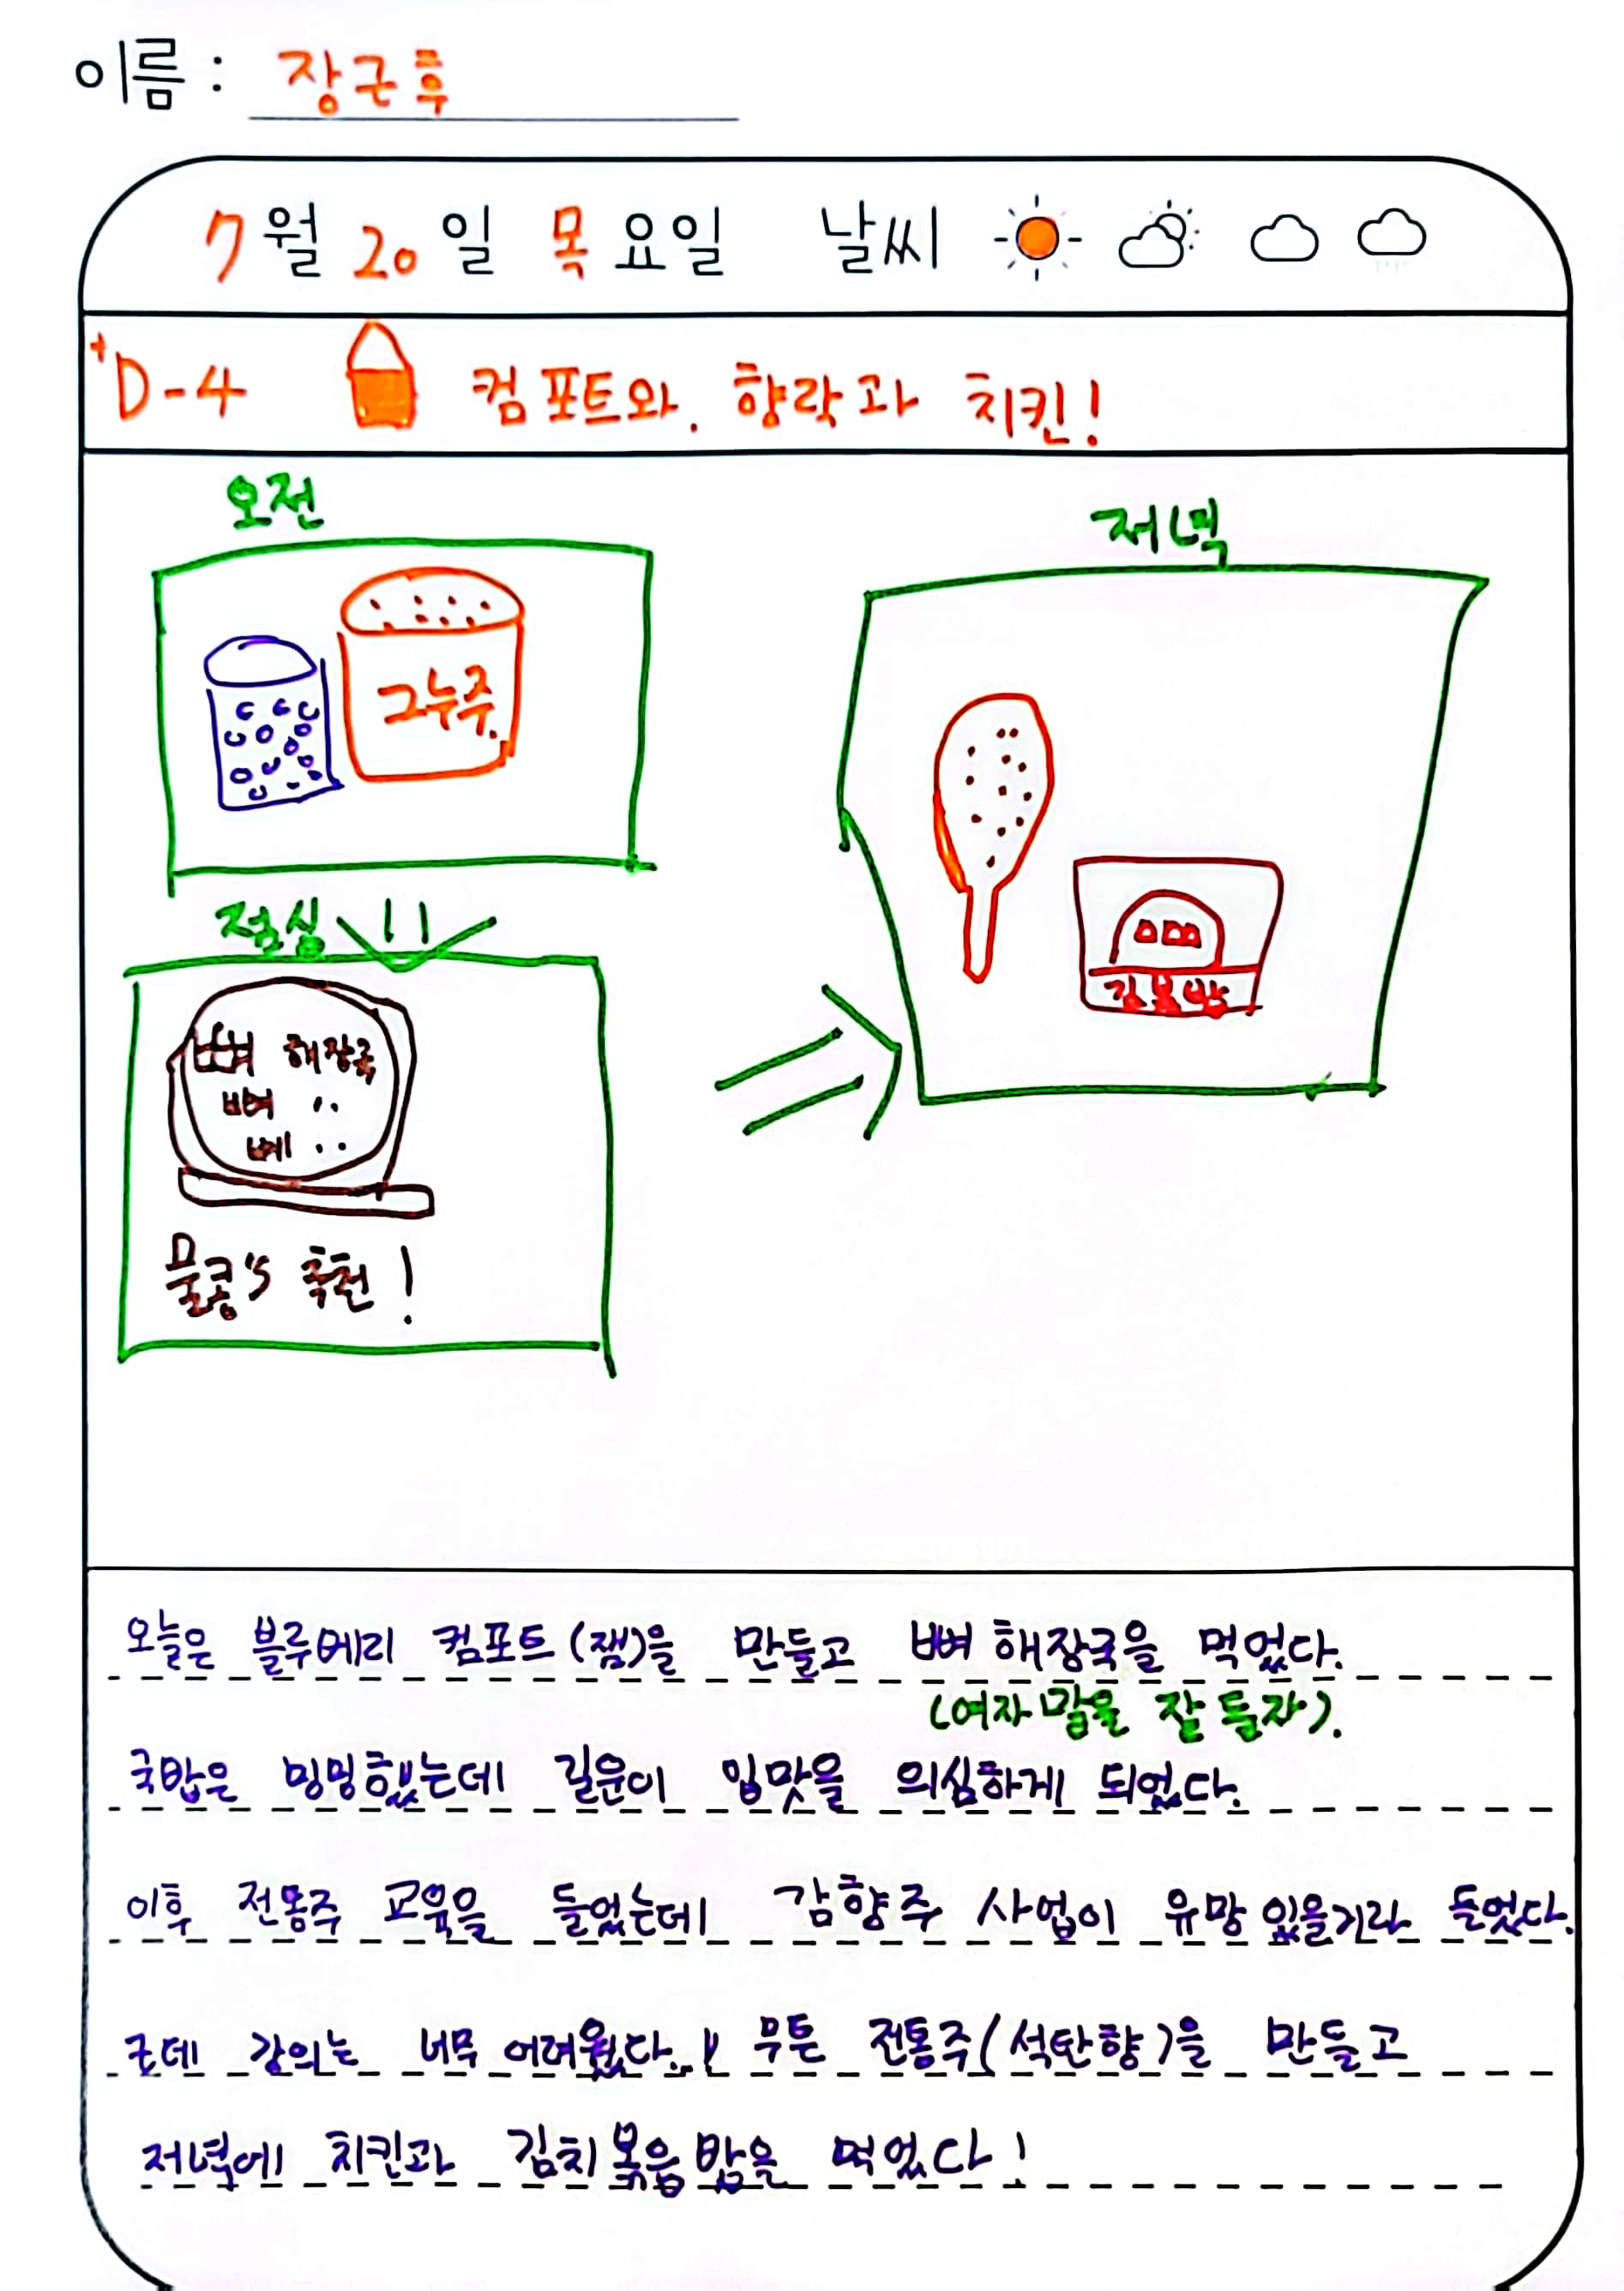 이름 : 장근후
7월 20일 목요일 날씨
+D-4 컴포트와. 향락과 치킨!
오전
그누주.
점심
뼈 해장국
뼈 ..
뼈 ..
물콩's 추천!
저녁
김볶밥
오늘은 블루베리 컴포트(잼)을 만들고 뼈 해장국을 먹었다.
(여자 말을 잘 듣자).
국밥은 밍밍했는데 길운이 입맛을 의심하게 되었다.
이후 전통주 교육을 들었는데 감향주 사업이 유망 있을거라 들었다.
근데 강의는 너무 어려웠다..! 무튼 전통주(석탄향)을 만들고
저녁에 치킨과 김치볶음밥을 먹었다!